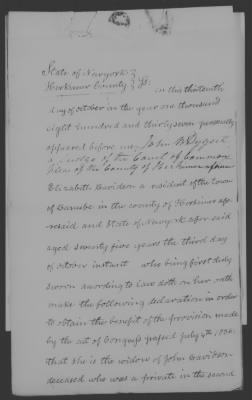 State of Newyork
Herkimer County } Ss. on this thirteenth
day of October in the year one thousand
eight hundred and thirtyseven personally
appeared before me John B Dygert
a Judge of the Court of Common
Pleas of the County of Herkimer aforesaid
Elizabeth Davidson a resident of the town
of Danube in the county of Herkimer afo-
resaid and State of Newyork afor said
aged seventy five years the third day
of October instant who being first duly
sworn acording to law doth on her oath
make the following declaration in order
to obtain the benefit of the provision made
by the act of Congress passed July 4th, 1836.
that she is the widow of John Davidson
deceased who was a private in the second